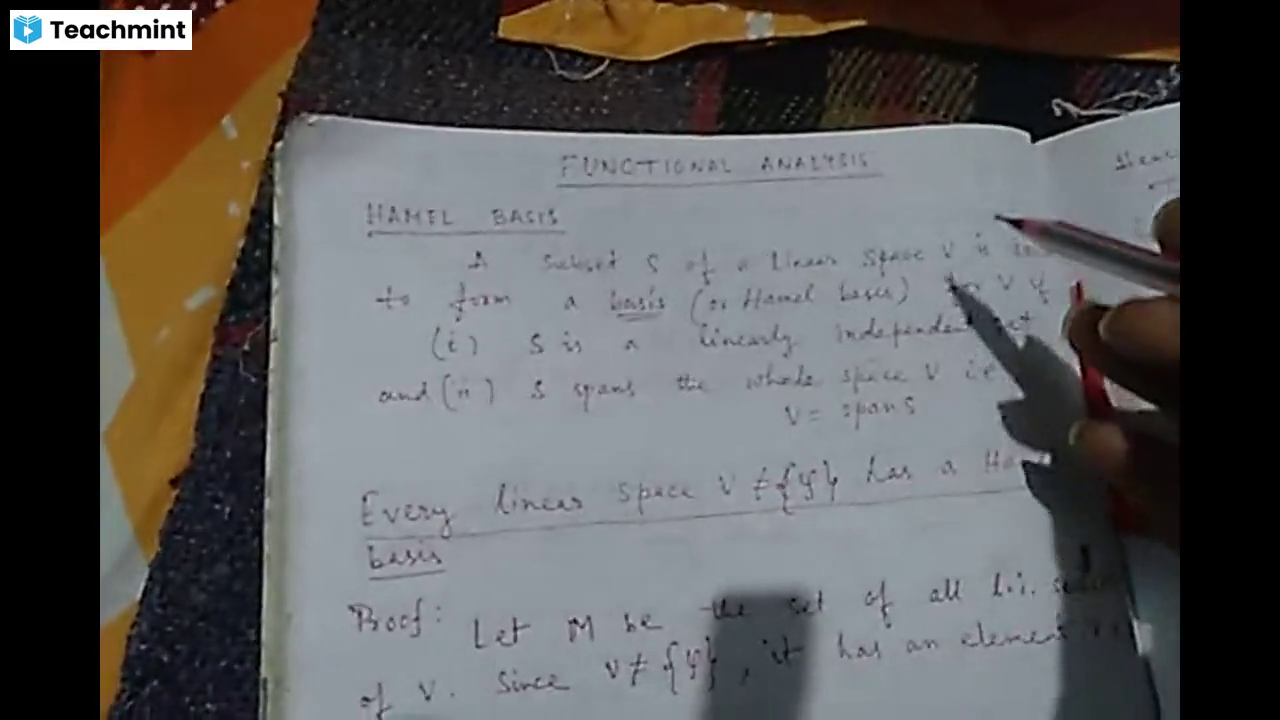 Teachmint
FUNCTIONAL ANALYSIS
HAMEL BASIS
A subset S of a linear space V is
to form a basis (or Hamel basis) for V if
(i) S is a linearly independent set
and (ii) S spans the whole space V i.e
V = span S
Every linear space V ≠ {φ} has a
basis
Proof: Let M be the set of all l.i.
of V. Since V ≠ {φ}, it has an element